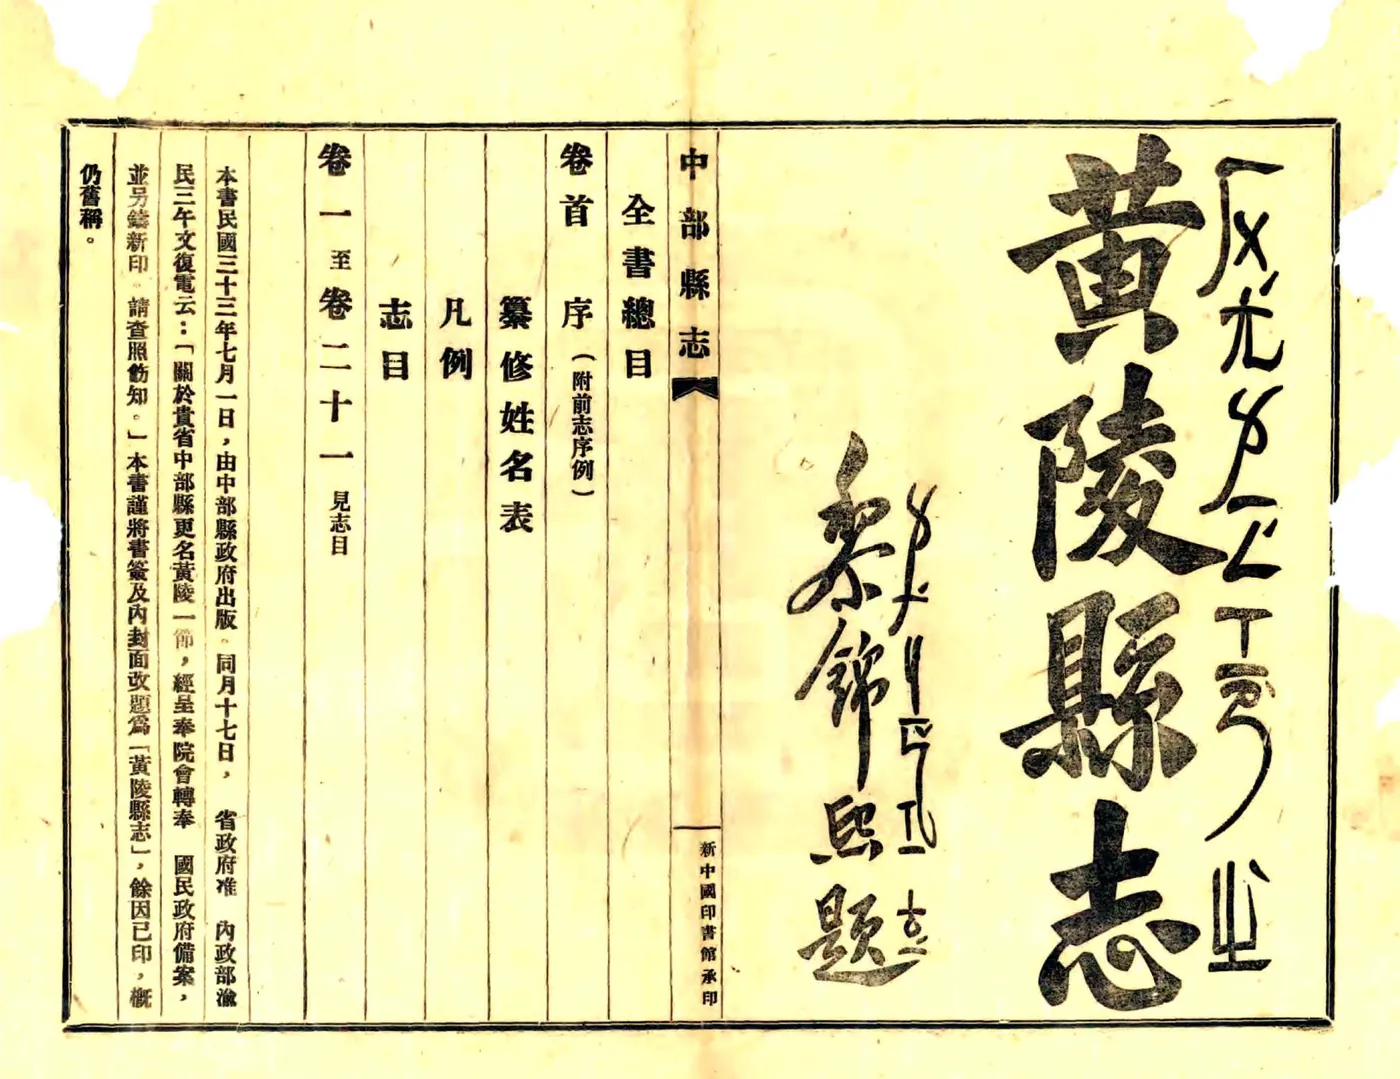 黃陵縣志
黎錦熙題
中部縣志
新中國印書館承印
全書總目
卷首　序（附前志序例）
纂修姓名表
凡例
志目
卷一至卷二十一見志目
本書民國三十三年七月一日，由中部縣政府出版。同月十七日，　省政府准　內政部渝
民三午文復電云：「關於貴省中部縣更名黃陵一節，經呈奉院會轉奉　國民政府備案，
並另鑄新印。請查照飭知。」本書謹將書簽及內封面改題爲「黃陵縣志」，餘因已印，概
仍舊稱。